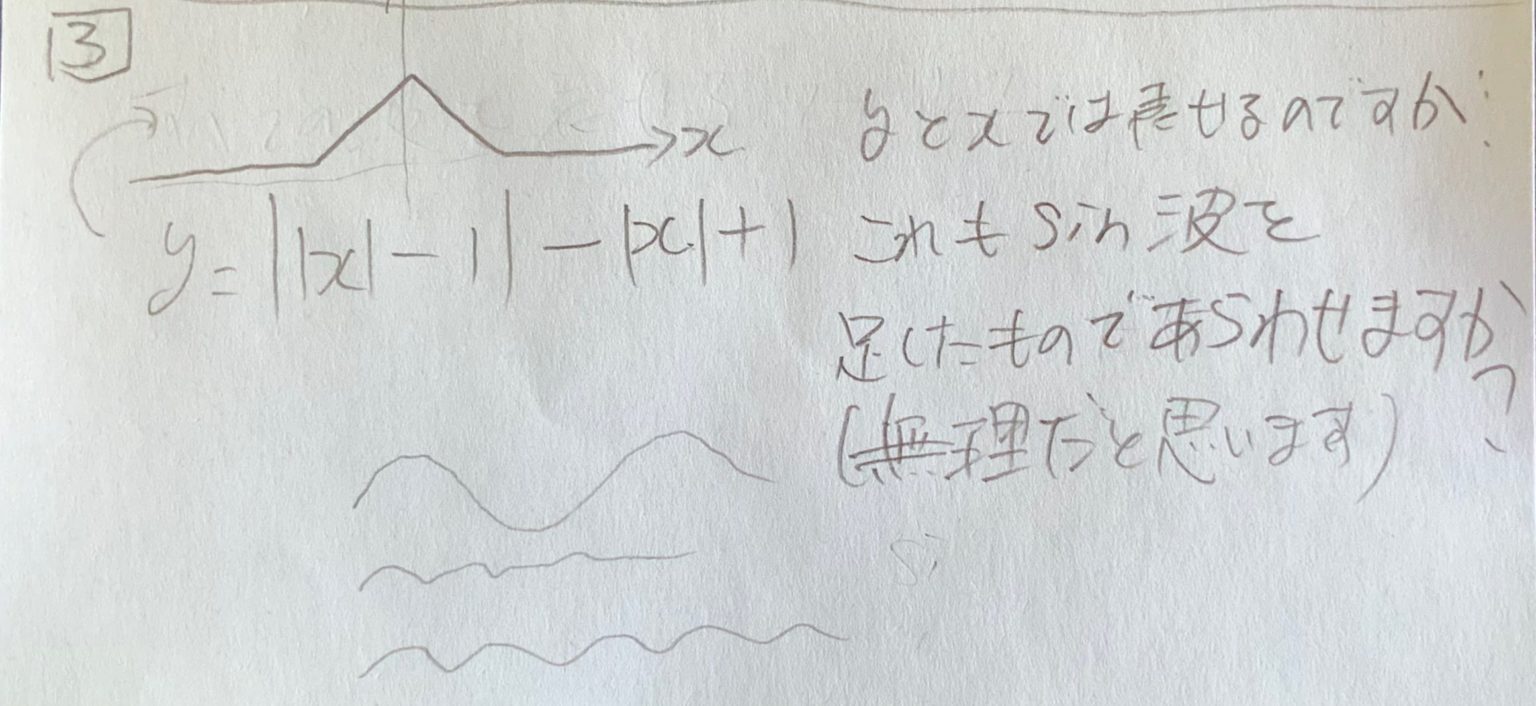 3
x
yとxでは表せるのですが
y=||x|-1|-|x|+1
これもsin波を
足したものであらわせますか?
(無理だと思います)